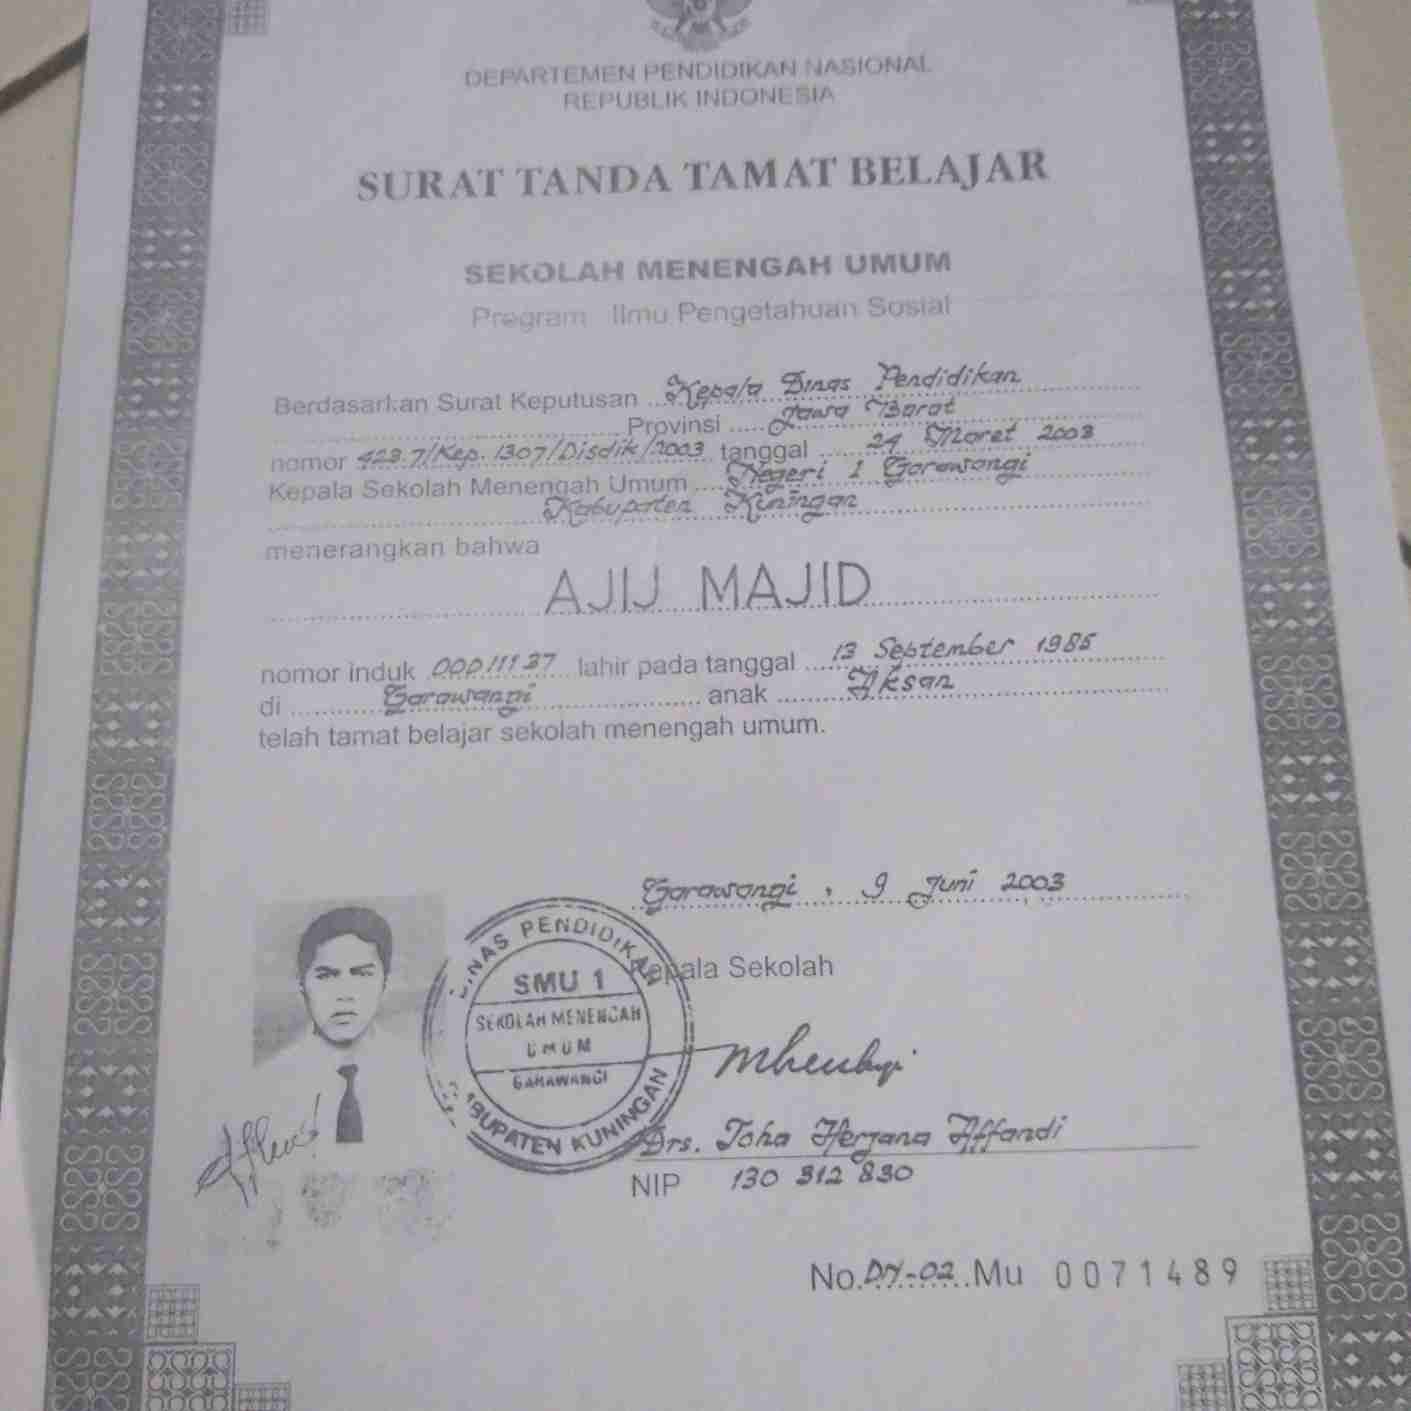 DEPARTEMEN PENDIDIKAN NASIONAL
REPUBLIK INDONESIA
SURAT TANDA TAMAT BELAJAR
SEKOLAH MENENGAH UMUM
Program Ilmu Pengetahuan Sosial
Berdasarkan Surat Keputusan Kepala Dinas Pendidikan
Provinsi Jawa Barat
nomor 423.7/Kep. 1307/Disdik/2003 tanggal 24 Maret 2003
Kepala Sekolah Menengah Umum Negeri 1 Garawangi
Kabupaten Kuningan
menerangkan bahwa
AJIJ MAJID
nomor induk 000111137 lahir pada tanggal 13 September 1985
di Garawangi anak Aksan
telah tamat belajar sekolah menengah umum.
Garawangi, 9 Juni 2003
Kepala Sekolah
DINAS PENDIDIKAN
SMU 1
SEKOLAH MENENGAH
UMUM
GARAWANGI
KABUPATEN KUNINGAN
Drs. Toha Herjana Affandi
NIP 130 312 830
No. DN-02 Mu 0071489